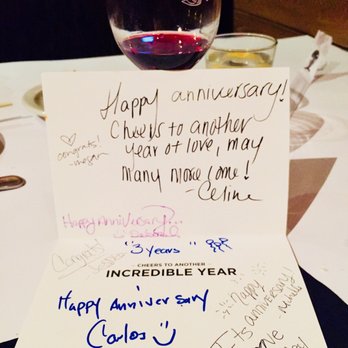 Happy anniversary!
Cheers to another
year of love, may
many more come!
- Celine
congrats!
-megan
Happy Anniversary
Congrats!
"3 years"
CHEERS TO ANOTHER
INCREDIBLE YEAR
Happy Anniversary
Carlos
Happy
anniversary!